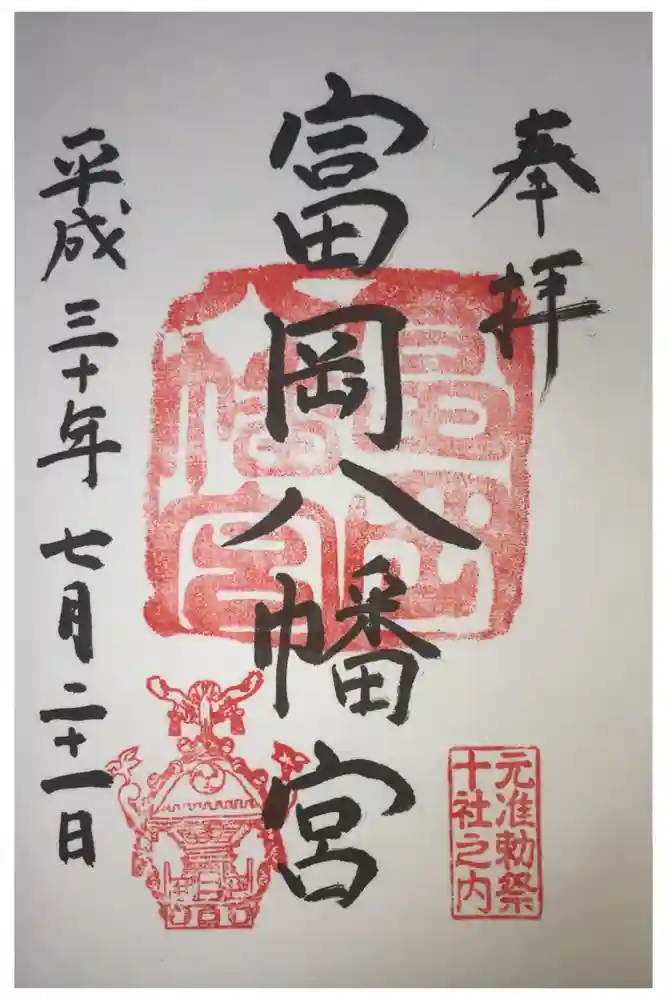 奉拝
富岡八幡宮
平成三十年七月二十一日
元准勅祭
十社之内
富岡八幡宮